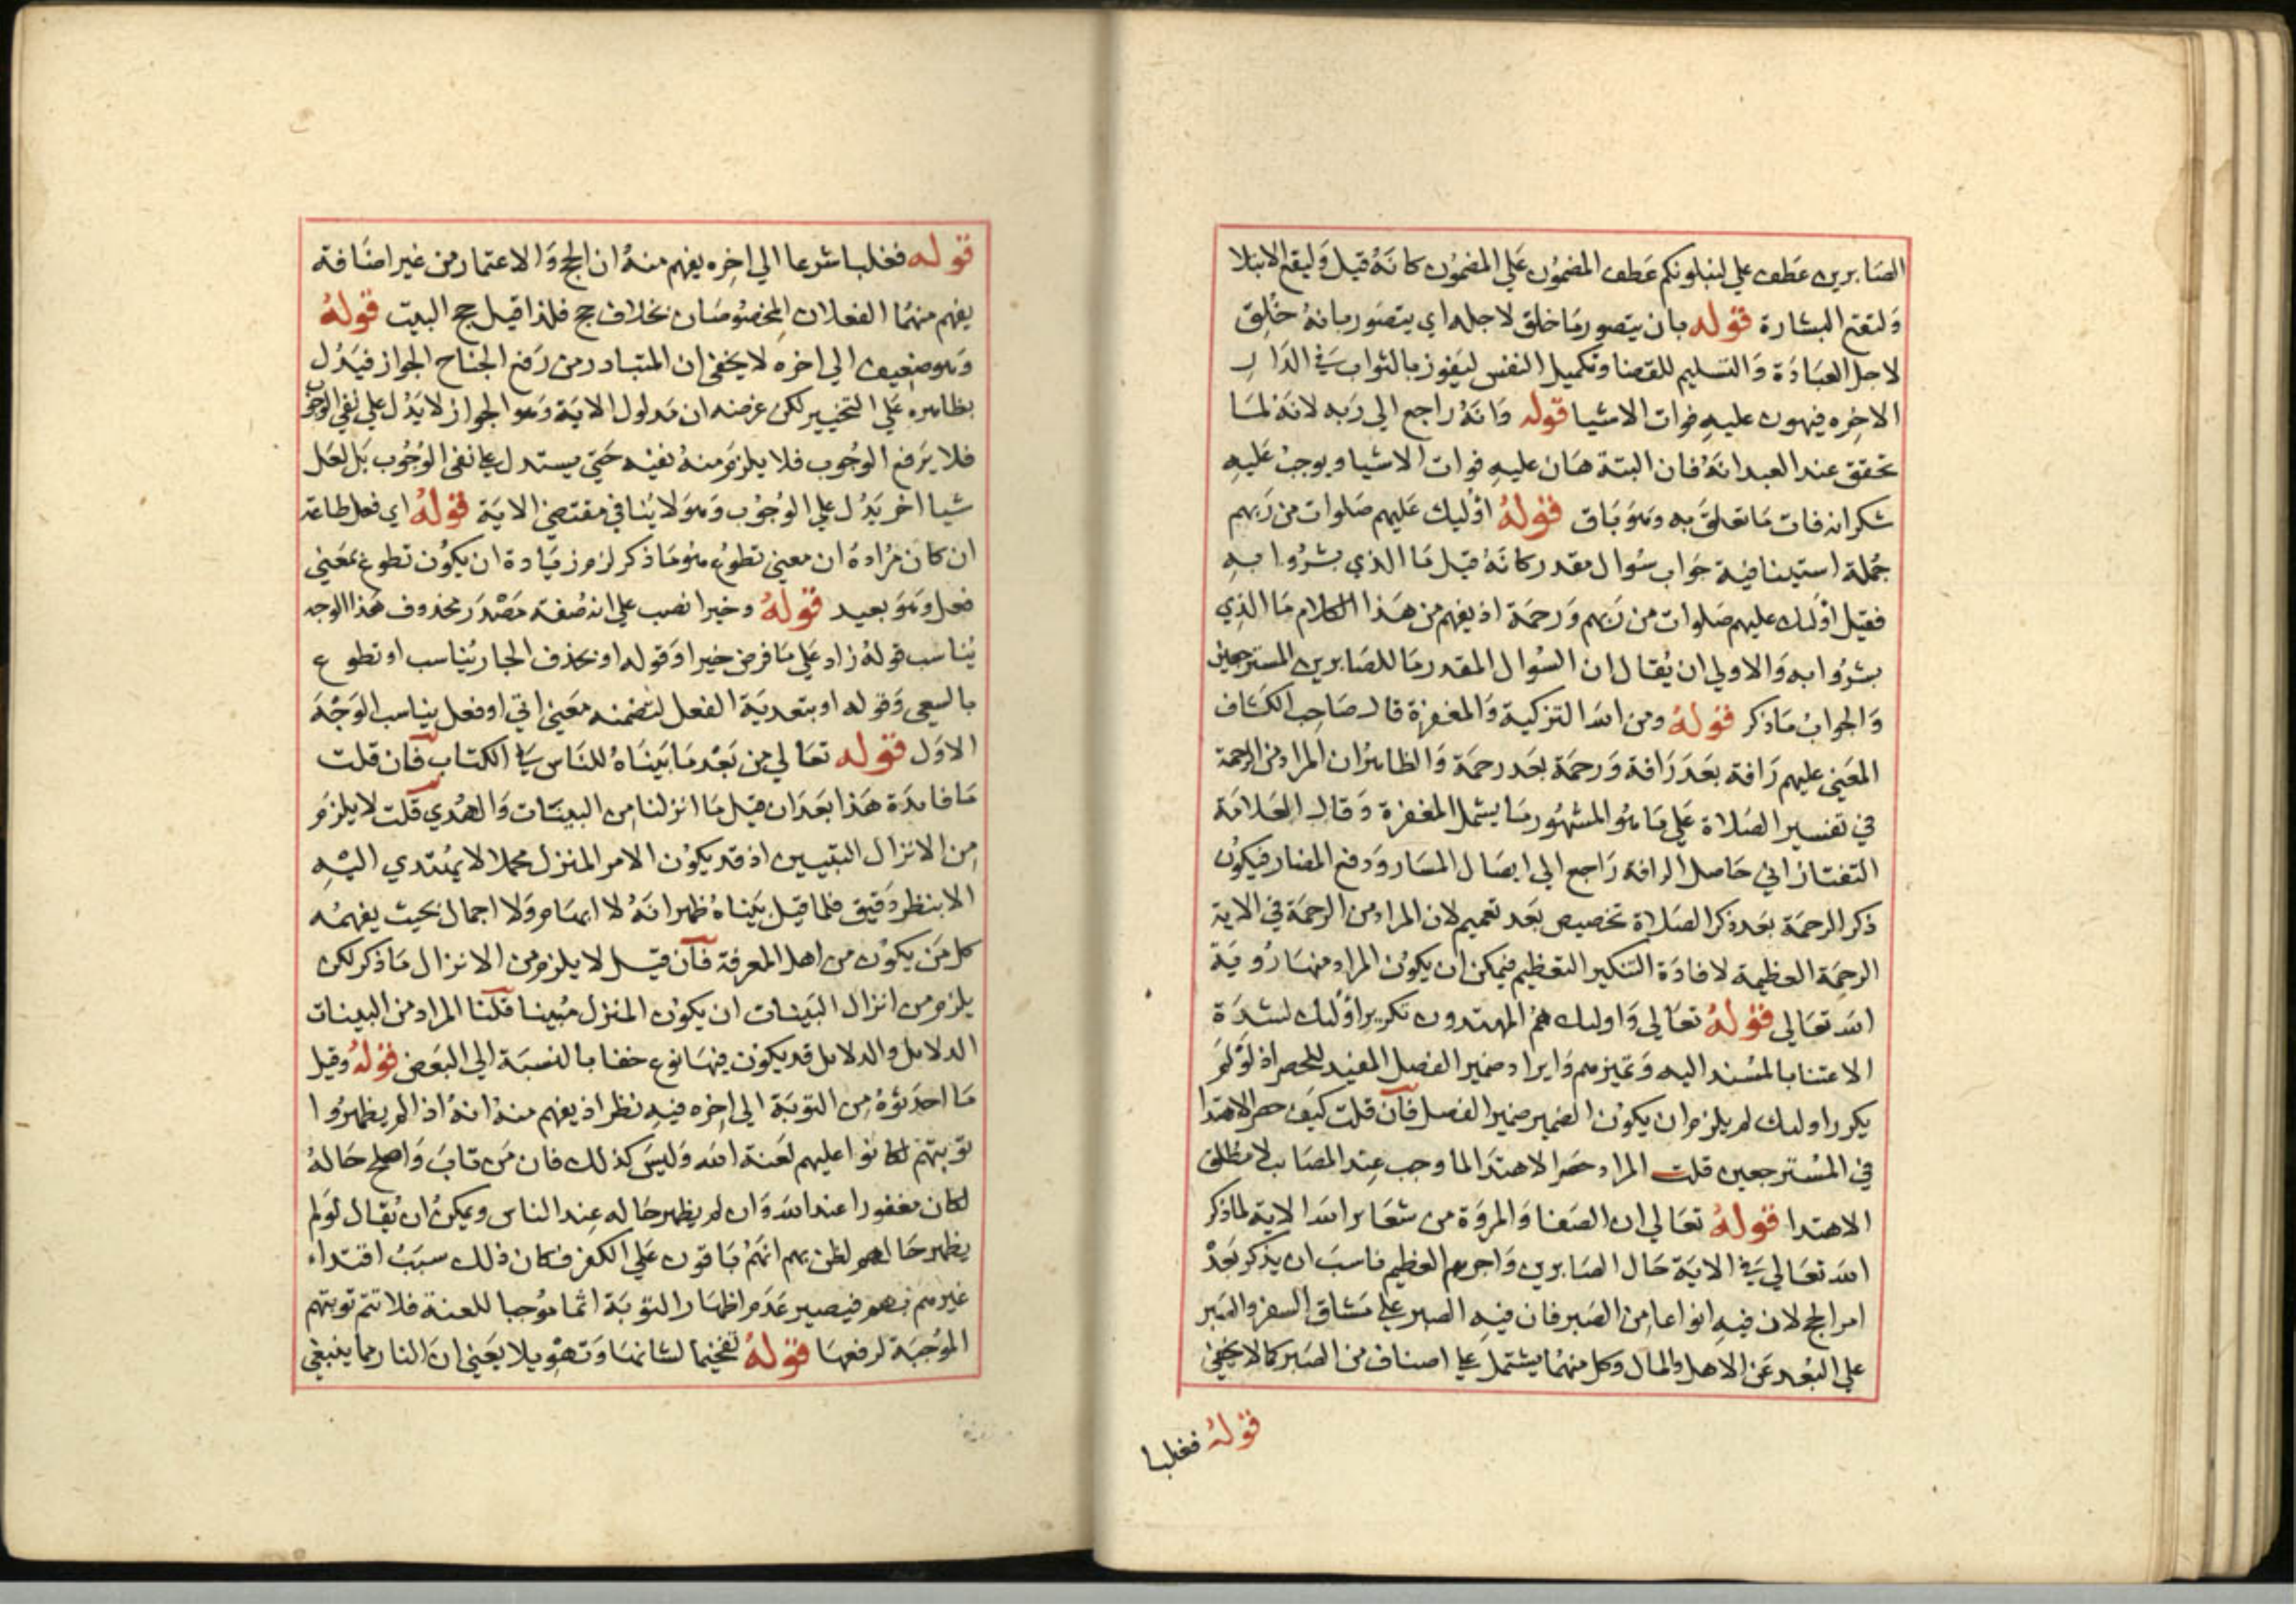 الصابرين عطف علي لنبلونكم عطف المضمون علي المضمون كانه قيل وليقع الابتلا
ولتقع البشارة قوله بان يتصور ما خلق لاجله اي يتصور بانه خلق
لاجل العبادة والتسليم للقضا وتكميل النفس ليفوز بالثواب في الدار
الاخره فيهون عليه فوات الاشيا قوله وانه راجع الي ربه لانه لما
تحقق عند العبد انه فان البتة هان عليه فوات الاشيا ويوجب عليه
شكر انه فات ما تعلق به وهو باق قوله اوليك عليهم صلوات من ربهم
جملة استينافية جواب سوال مقدر كانه قيل ما الذي بشروا به
فقيل اولئك عليهم صلوات من ربهم ورحمة اذ يفهم من هذا الكلام ما الذي
بشروا به والاولي ان يقال ان السوال المقدر ما للصابرين المسترجعين
والجواب ما ذكر قوله ومن الله التزكية والمغفرة قال صاحب الكشاف
المعني عليهم رافة بعد رافة ورحمة بعد رحمة والظاهر ان المراد من الرحمة
في تفسير الصلاة علي ما هو المشهور ما يشمل المغفرة وقال العلامة
التفتازاني حاصل الرافة راجع الي ايصال المسار ودفع المضار فيكون
ذكر الرحمة بعد ذكر الصلاة تخصيص بعد تعميم لان المراد من الرحمة في الاية
الرحمة العظيمة لافادة التنكير التعظيم فيمكن ان يكون المراد منها روية
الله تعالي قوله تعالي واولئك هم المهتدون تكرير اولئك لشدة
الاعتنا بالمسند اليه وتميزهم وايراد ضمير الفصل المفيد للحصر اذ لو لم
يكرر اولئك لم يلزم ان يكون الضمير ضمير الفصل فان قلت كيف حصر الاهتدا
في المسترجعين قلت المراد حصر الاهتدا لما وجب عند المصاب لا مطلق
الاهتدا قوله تعالي ان الصفا والمروة من شعاير الله الاية لما ذكر
الله تعالي في الاية حال الصابرين واجرهم العظيم ناسب ان يذكر بعد
امر الحج لان فيه انواعا من الصبر فان فيه الصبر علي مشاق السفر والصبر
علي البعد عن الاهل والمال وكل منهما يشتمل علي اصناف من الصبر كما لا يخفي
قوله فغلبا
قوله فغلبا شرعا الي اخره يفهم منه ان الحج والاعتمار من غير اضافة
يفهم منهما الفعلان المخصوصان بخلاف حج فلذا قيل حج البيت قوله
وهو ضعيف الي اخره لا يخفي ان المتبادر من رفع الجناح الجواز فيدل
بظاهره علي التخيير لكن غرضه ان مدلول الاية وهو الجواز لا يدل علي نفي الوجوب
فلا يرفع الوجوب فلا يلزم منه نفيه حتي يستدل علي نفي الوجوب بل لعل
شيا اخر يدل علي الوجوب وهو لا ينافي مقتضي الاية قوله اي فعل طاعة
ان كان مراده ان معني تطوع هو ما ذكر لزم زيادة ان يكون تطوع بمعني
فعل وهو بعيد قوله وخيرا نصب علي انه صفة مصدر محذوف هذا الوجه
يناسب قوله زاد علي ما فرض خيرا وقوله او بحذف الجار يناسب او تطوع
بالسعي وقوله او بتعدية الفعل لتضمنه معني اتي او فعل يناسب الوجه
الاول قوله تعالي من بعد ما بيناه للناس في الكتاب فان قلت
ما فايدة هذا بعد ان قيل ما انزلنا من البينات والهدي قلت لا يلزم
من الانزال التبيين اذ قد يكون الامر المنزل مجملا لا يهتدي اليه
الا بنظر دقيق فلما قيل بيناه ظهر انه لا ابهام ولا اجمال بحيث يفهمه
كل من يكون من اهل المعرفة فان قيل لا يلزم من الانزال ما ذكر لكن
يلزم من انزال البينات ان يكون المنزل مبينا قلنا المراد من البينات
الدلايل والدلايل قد يكون فيها نوع خفا بالنسبة الي البعض قوله وقيل
ما احدثوه من التوبة الي اخره فيه نظر اذ يفهم منه انه اذا لم يظهروا
توبتهم لكانوا عليهم لعنة الله وليس كذلك فان من تاب واصلح حاله
لكان مغفورا عند الله وان لم يظهر حاله عند الناس ويمكن ان يقال لو لم
يظهر حالهم لظن بهم انهم باقون علي الكفر فكان ذلك سبب اقتداء
غيرهم بهم فيصير عدم اظهار التوبة اثما موجبا للعنة فلا تتم توبتهم
الموجبة لرفعها قوله تفخيما لشانها وتهويلا يعني ان النار مما ينبغي